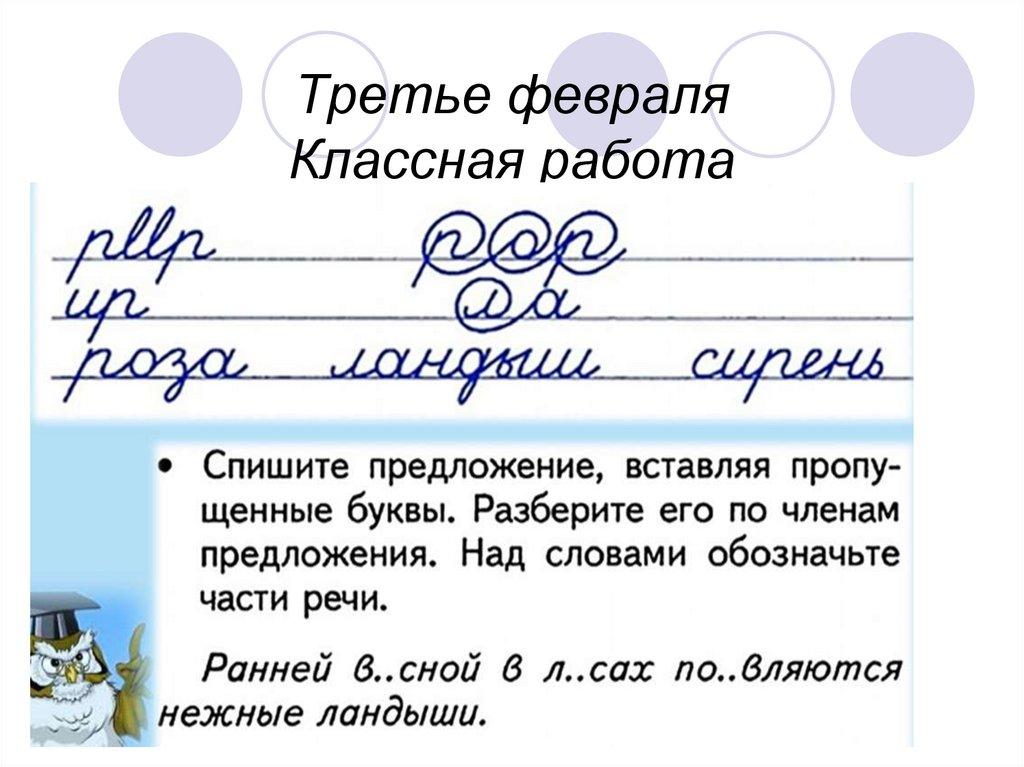 Третье февраля
Классная работа
рllр рор
ир ла
роза ландыш сирень
• Спишите предложение, вставляя пропу-
щенные буквы. Разберите его по членам
предложения. Над словами обозначьте
части речи.
Ранней в..сной в л..сах по..вляются
нежные ландыши.